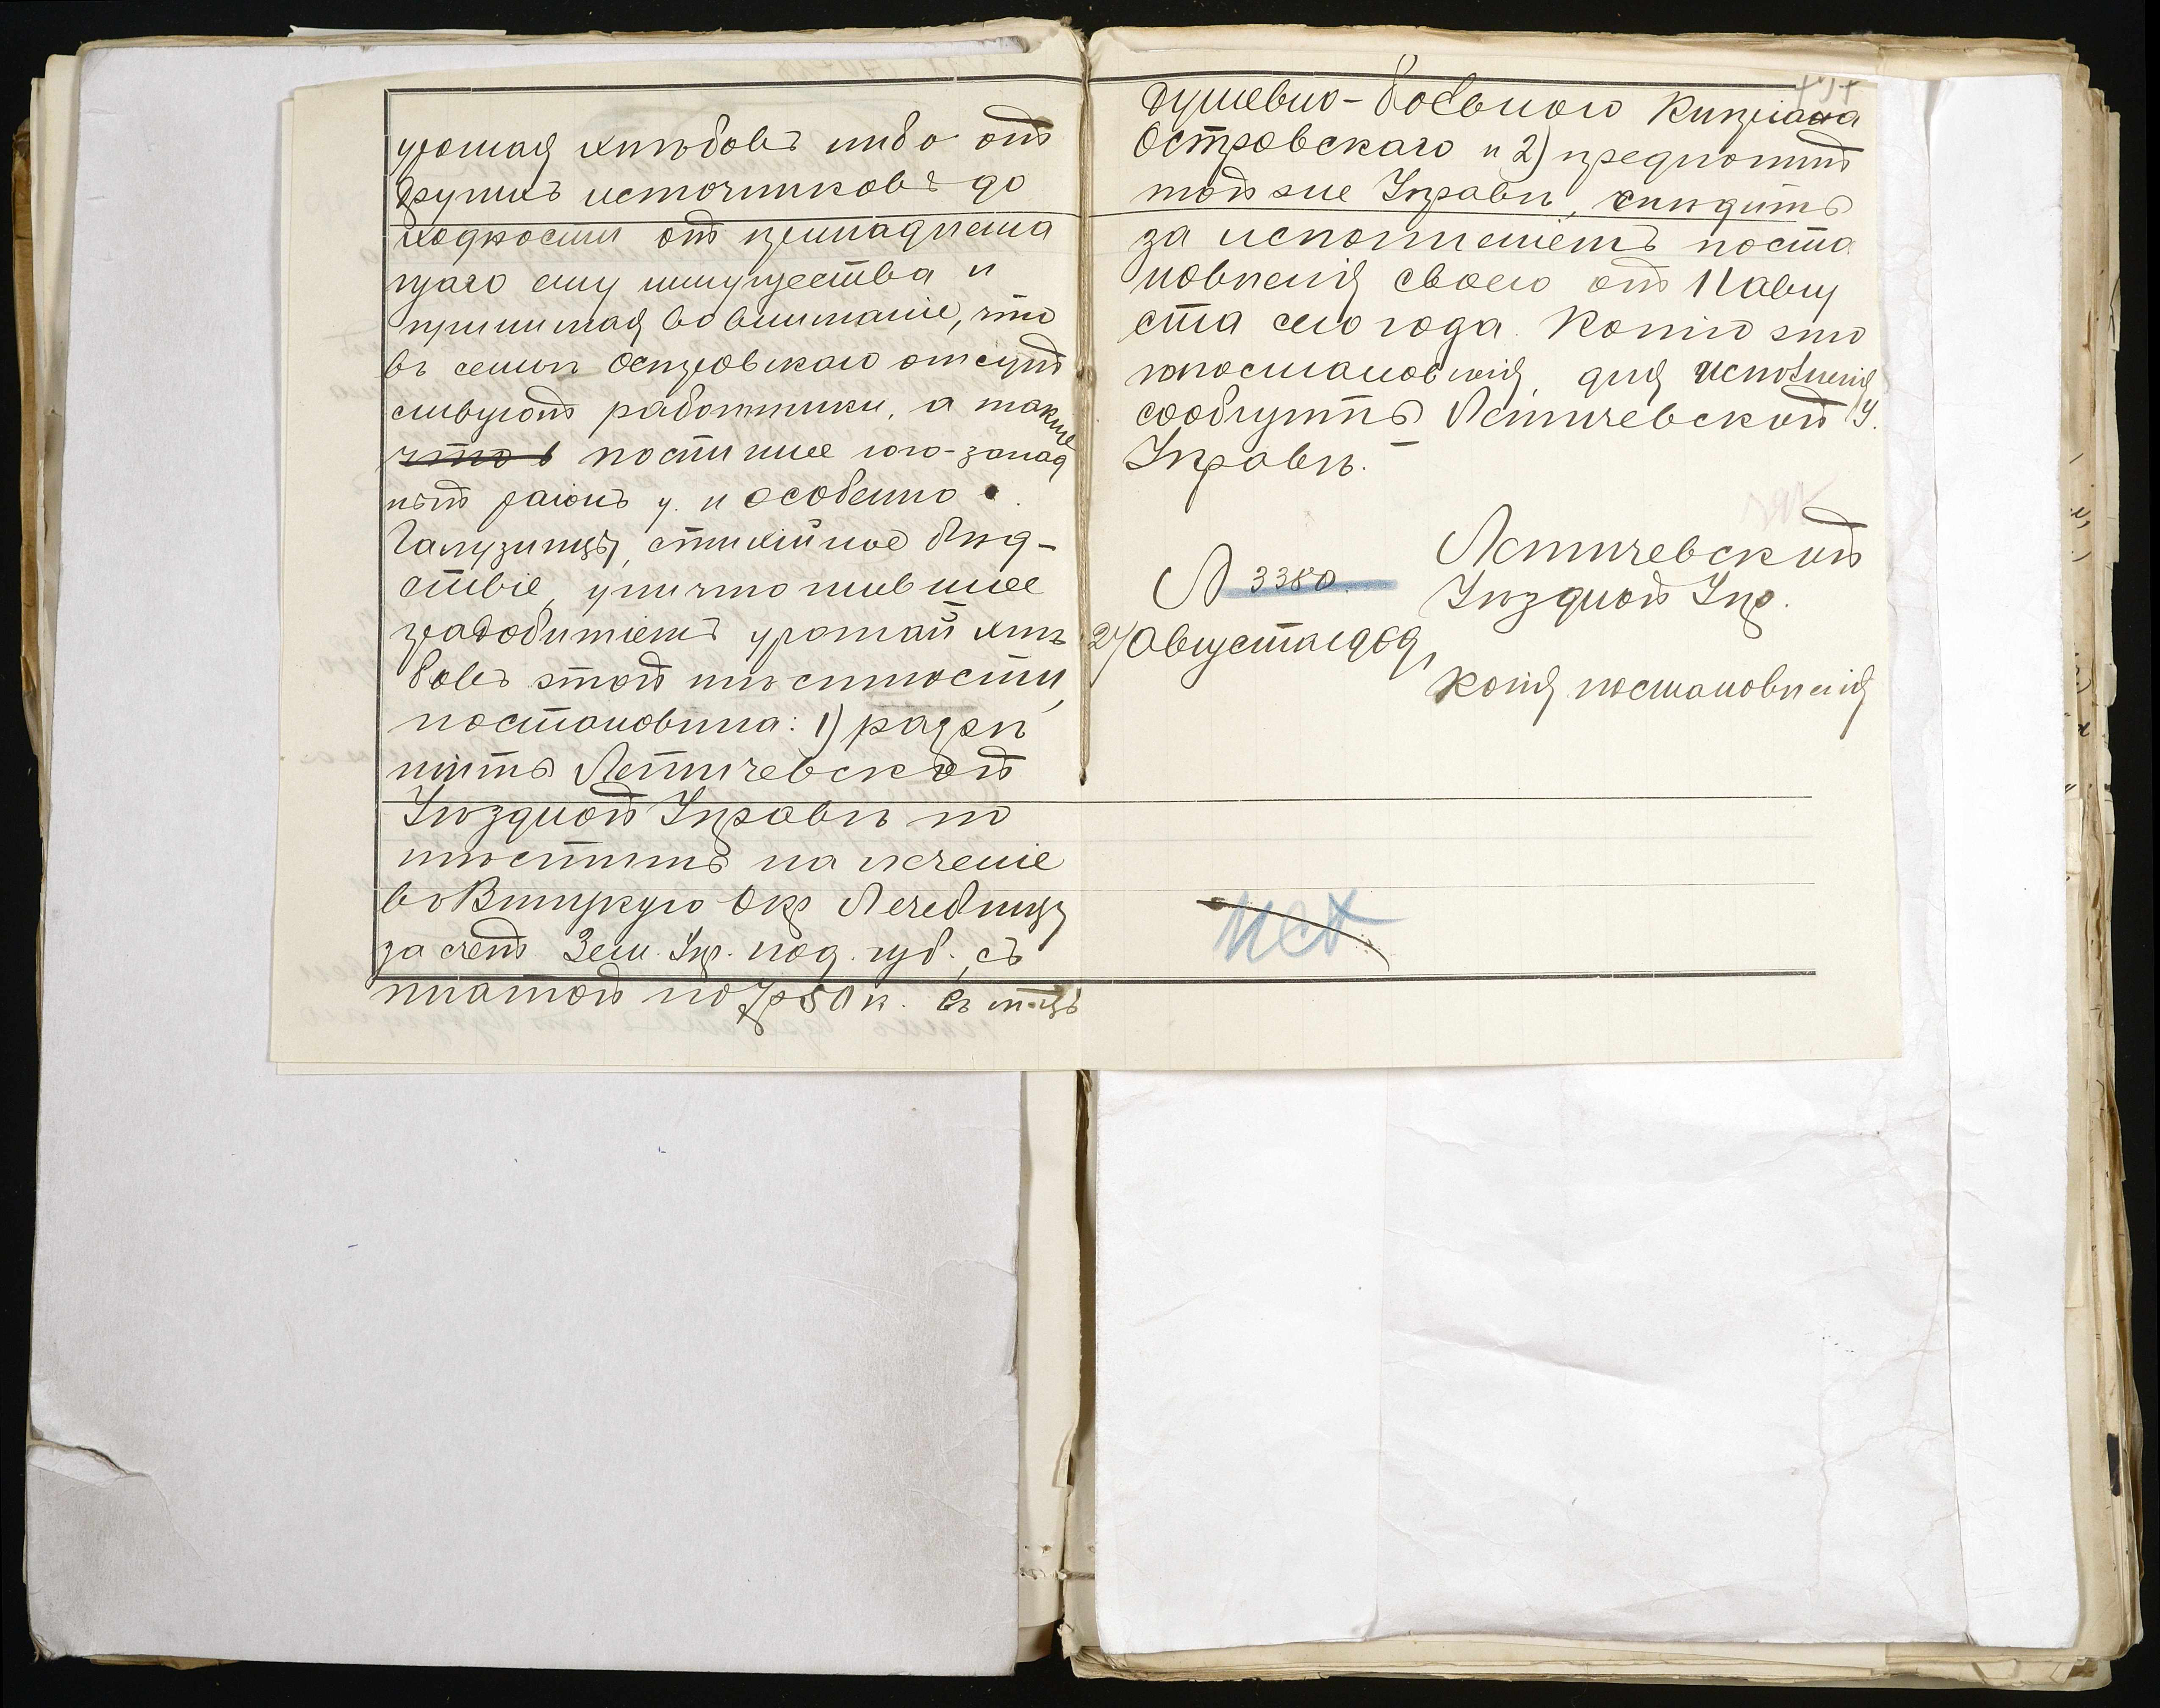 урожая хлѣбовъ либо отъ
другихъ источниковъ до
ходности отъ принадлежа
щаго ему имущества и
принимая во вниманіе, что
въ семьѣ Островскаго отсут
ствуютъ работники, а также
что в постигшее юго-запад
ный раіонъ у. и особенно
Галузинцы, стихійное бѣд-
ствіе, уничтожившее
градобитіемъ урожай хлѣ
бовъ этой мѣстности,
постановила: 1) разрѣ
шить Летичевской
Уѣздной Управѣ по
мѣстить на леченіе
въ Винницкую Окр Лечебницу
за счетъ Зем. Упр. под. губ., съ
платой по 7 р 50 к. въ м-цъ
душевно-больного Кипріана
Островскаго и 2) предложить
той же Управѣ, слѣдить
за исполненіемъ поста
новленія своего отъ 11 авгу
ста сего года. Копію это
го постановленія, для исполненія
сообщить Летичевской У.
Управѣ.
Летичевской
Уѣздной Упр.
№ 3380.
27 августа 1909
Копія постановленія